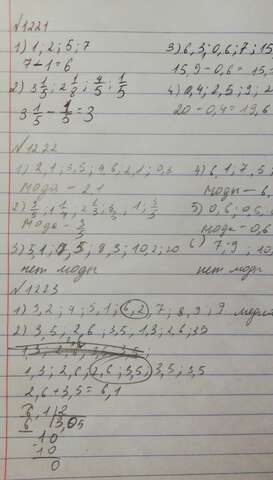 №1221
1) 1; 2; 5; 7
7 - 1 = 6
2) 3 1/5; 2 1/8; 4/5; 1/5
3 1/5 - 1/5 = 3
3) 6,3; 0,6; 7; 15
15,9 - 0,6 = 15,
4) 0,4; 2,5; 9; 2
20 - 0,4 = 19,6
№1222
1) 2,1; 3,5; 4,6; 2,1; 0,3
мода - 2,1
мода - 3/5
3) 3,1; 7,5; 8,3; 10,2; 20
нет моды
4) 6,1; 7,5;
моды - 6,
5) 0,6; 0,5;
мода - 0,6
6) 7; 9; 10,
нет мод
№1223
1) 3,2; 4; 5,1; 6,2; 7; 8,9; 9
2) 3,5; 2,6; 3,5; 1,3; 2,6;
1,3; 2,6; 2,6; 3,5; 3,5; 5,5
2,6 + 3,5 = 6,1
6,1 | 2
6 | 3,05
10
10
0